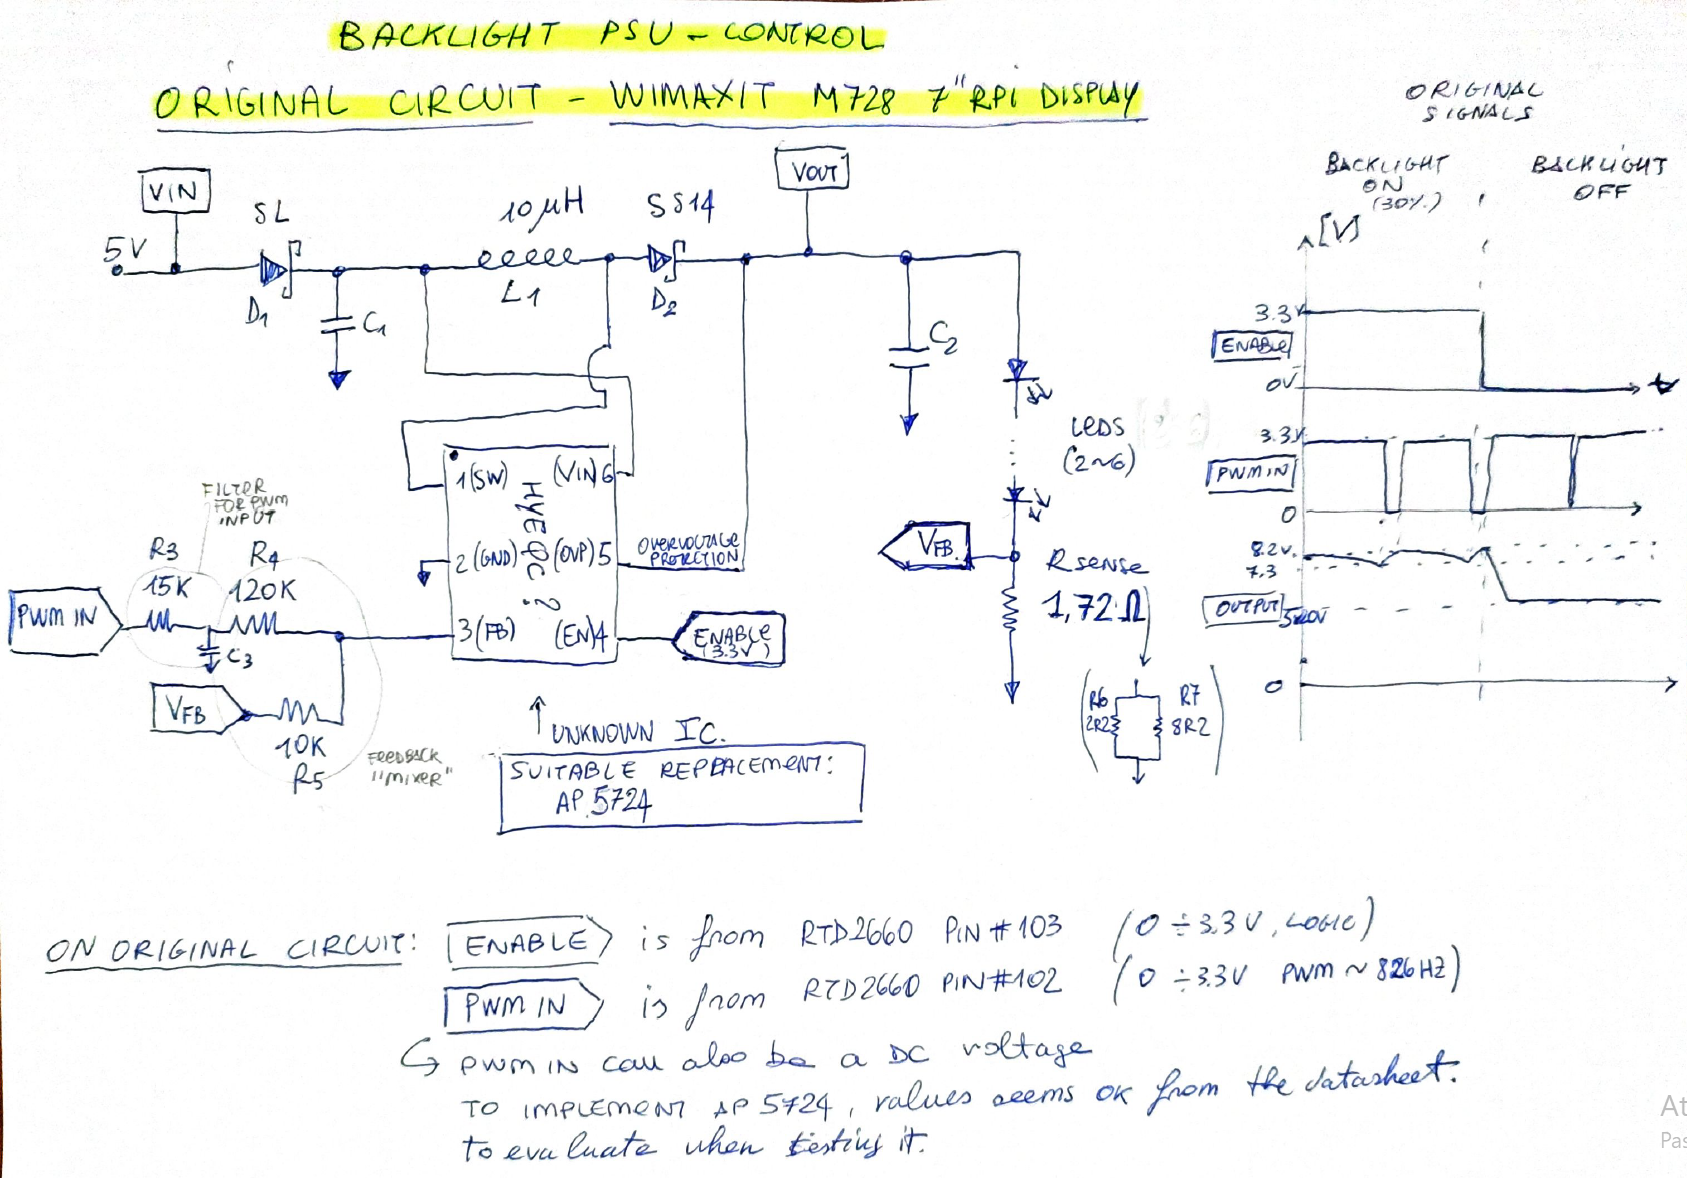 BACKLIGHT PSU - CONTROL
ORIGINAL CIRCUIT - WIMAXIT M728 7" RPi DISPLAY
ORIGINAL
SIGNALS
BACKLIGHT
ON
(30%)
BACKLIGHT
OFF
[V]
VIN
5V
SL
D1
C1
10µH
L1
SS14
D2
VOUT
C2
LEDS
(2~6)
VFB
R sense
1,72 Ω
R6
2R2
R7
8R2
1(SW)
(VIN)6
2(GND)
(OVP)5
3(FB)
(EN)4
OVERVOLTAGE
PROTECTION
ENABLE
(3.3V)
FILTER
FOR PWM
INPUT
R3
15K
R4
120K
PWM IN
C3
VFB
10K
R5
FEEDBACK
"MIXER"
↑ UNKNOWN IC.
SUITABLE REPLACEMENT:
AP 5724
3.3V
ENABLE
0V
t
3.3V
PWM IN
0
8.2V
7.3
OUTPUT
0
ON ORIGINAL CIRCUIT: ENABLE is from RTD2660 PIN #103 (0 ÷ 3.3V, LOGIC)
PWM IN is from RTD2660 PIN #102 (0 ÷ 3.3V PWM ~ 826HZ)
↪ PWM IN can also be a DC voltage
TO IMPLEMENT AP 5724, values seems OK from the datasheet.
to evaluate when testing it.
At
Pas